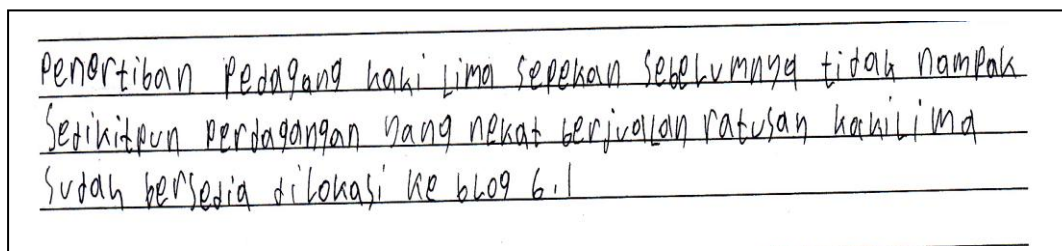 Penertiban Pedagang kaki Lima sepekan sebelumnya tidak nampak
Sedikitpun perdagangan yang nekat berjualan ratusan kakilima
Sudah bersedia dilokasi ke blog 6.1